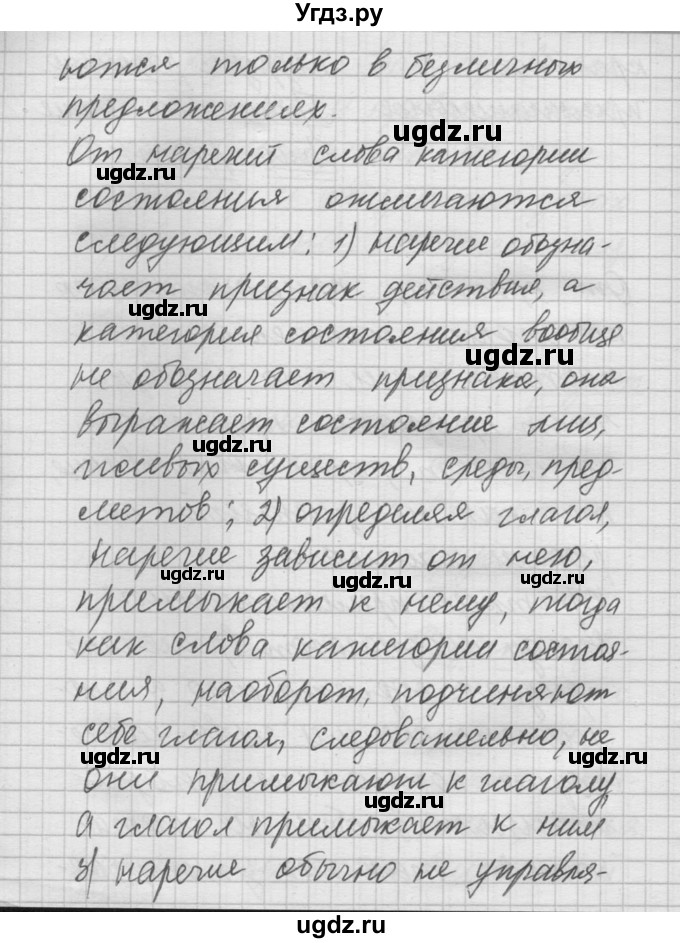 Угдз.ру
ются только в безличных
предложениях.
ugdz.ru
От наречий слова категории
ugdz.ru
состояния отличаются
следующим: 1) наречие обозна-
чает признак действия, а
ugdz.ru
категория состояния вообще
ugdz.ru
не обозначает признака, она
выражает состояние лиц,
ugdz.ru
живых существ, среды, пред-
метов; 2) определяя глагол,
наречие зависит от него,
ugdz.ru ugdz.ru ugdz.ru
примыкает к нему, тогда
как слова категории состоя-
ния, наоборот, подчиняют
себе глагол, следовательно, не
ugdz.ru
они примыкают к глаголу,
ugdz.ru
а глагол примыкает к ним
3) наречие обычно не управля-
ugdz.ru